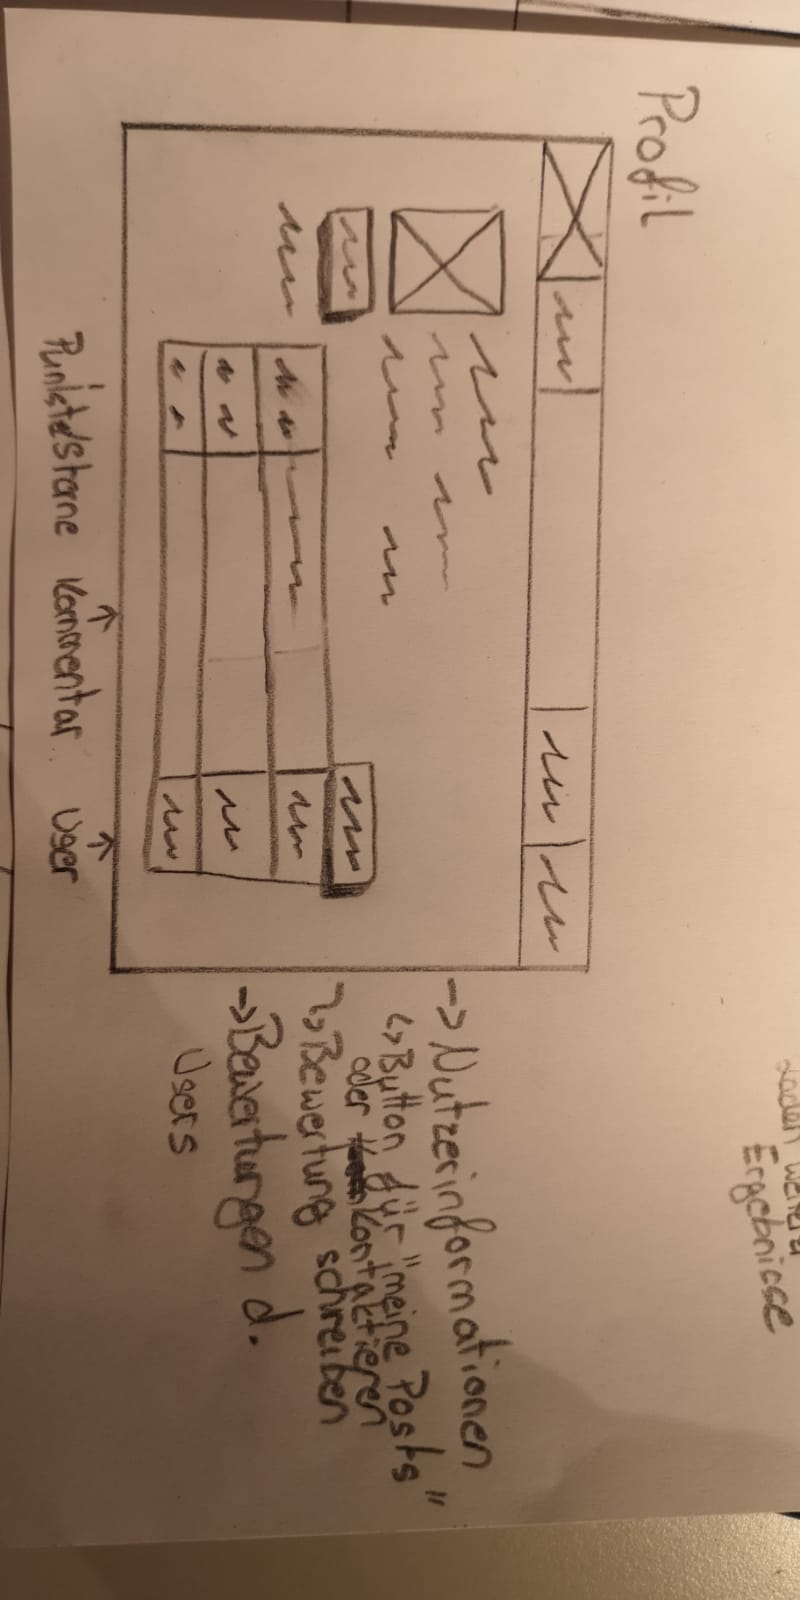 Laden weiterer
Ergebnisse
Profil
-> Nutzerinformationen
↳ Button für "meine Posts"
oder Kontaktieren
↳ Bewertung schreiben
-> Bewertungen d.
Users
Punkte/Sterne Kommentar User